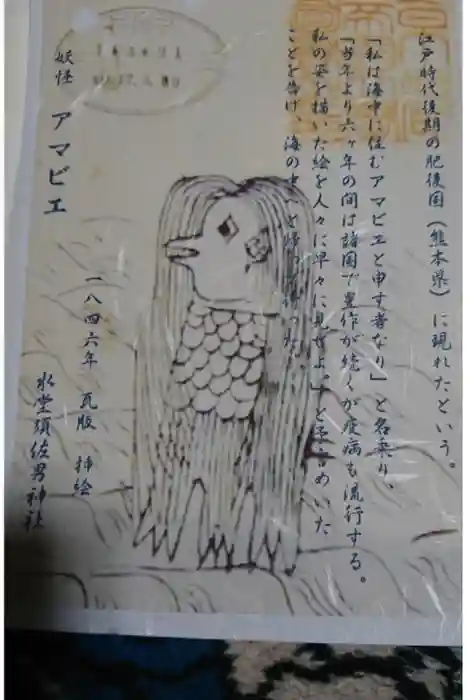 江戸時代後期の肥後国(熊本県)に現れたという。
「私は海中に住むアマビエと申す者なり」と名乗り、
「当年より六ヶ年の間は諸国で豊作が続くが疫病も流行する。
私の姿を描いた絵を人々に早々に見せよ。」と予言めいた
ことを告げ、海の中へと帰
妖怪 アマビエ
一八四六年 瓦版 挿絵
水堂須佐男神社